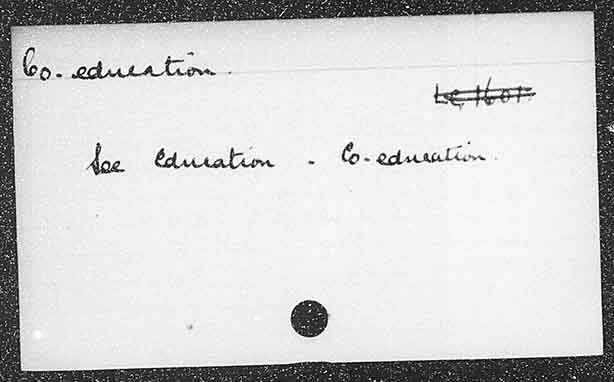 Co-education.
LC 1601.
See Education - Co-education.